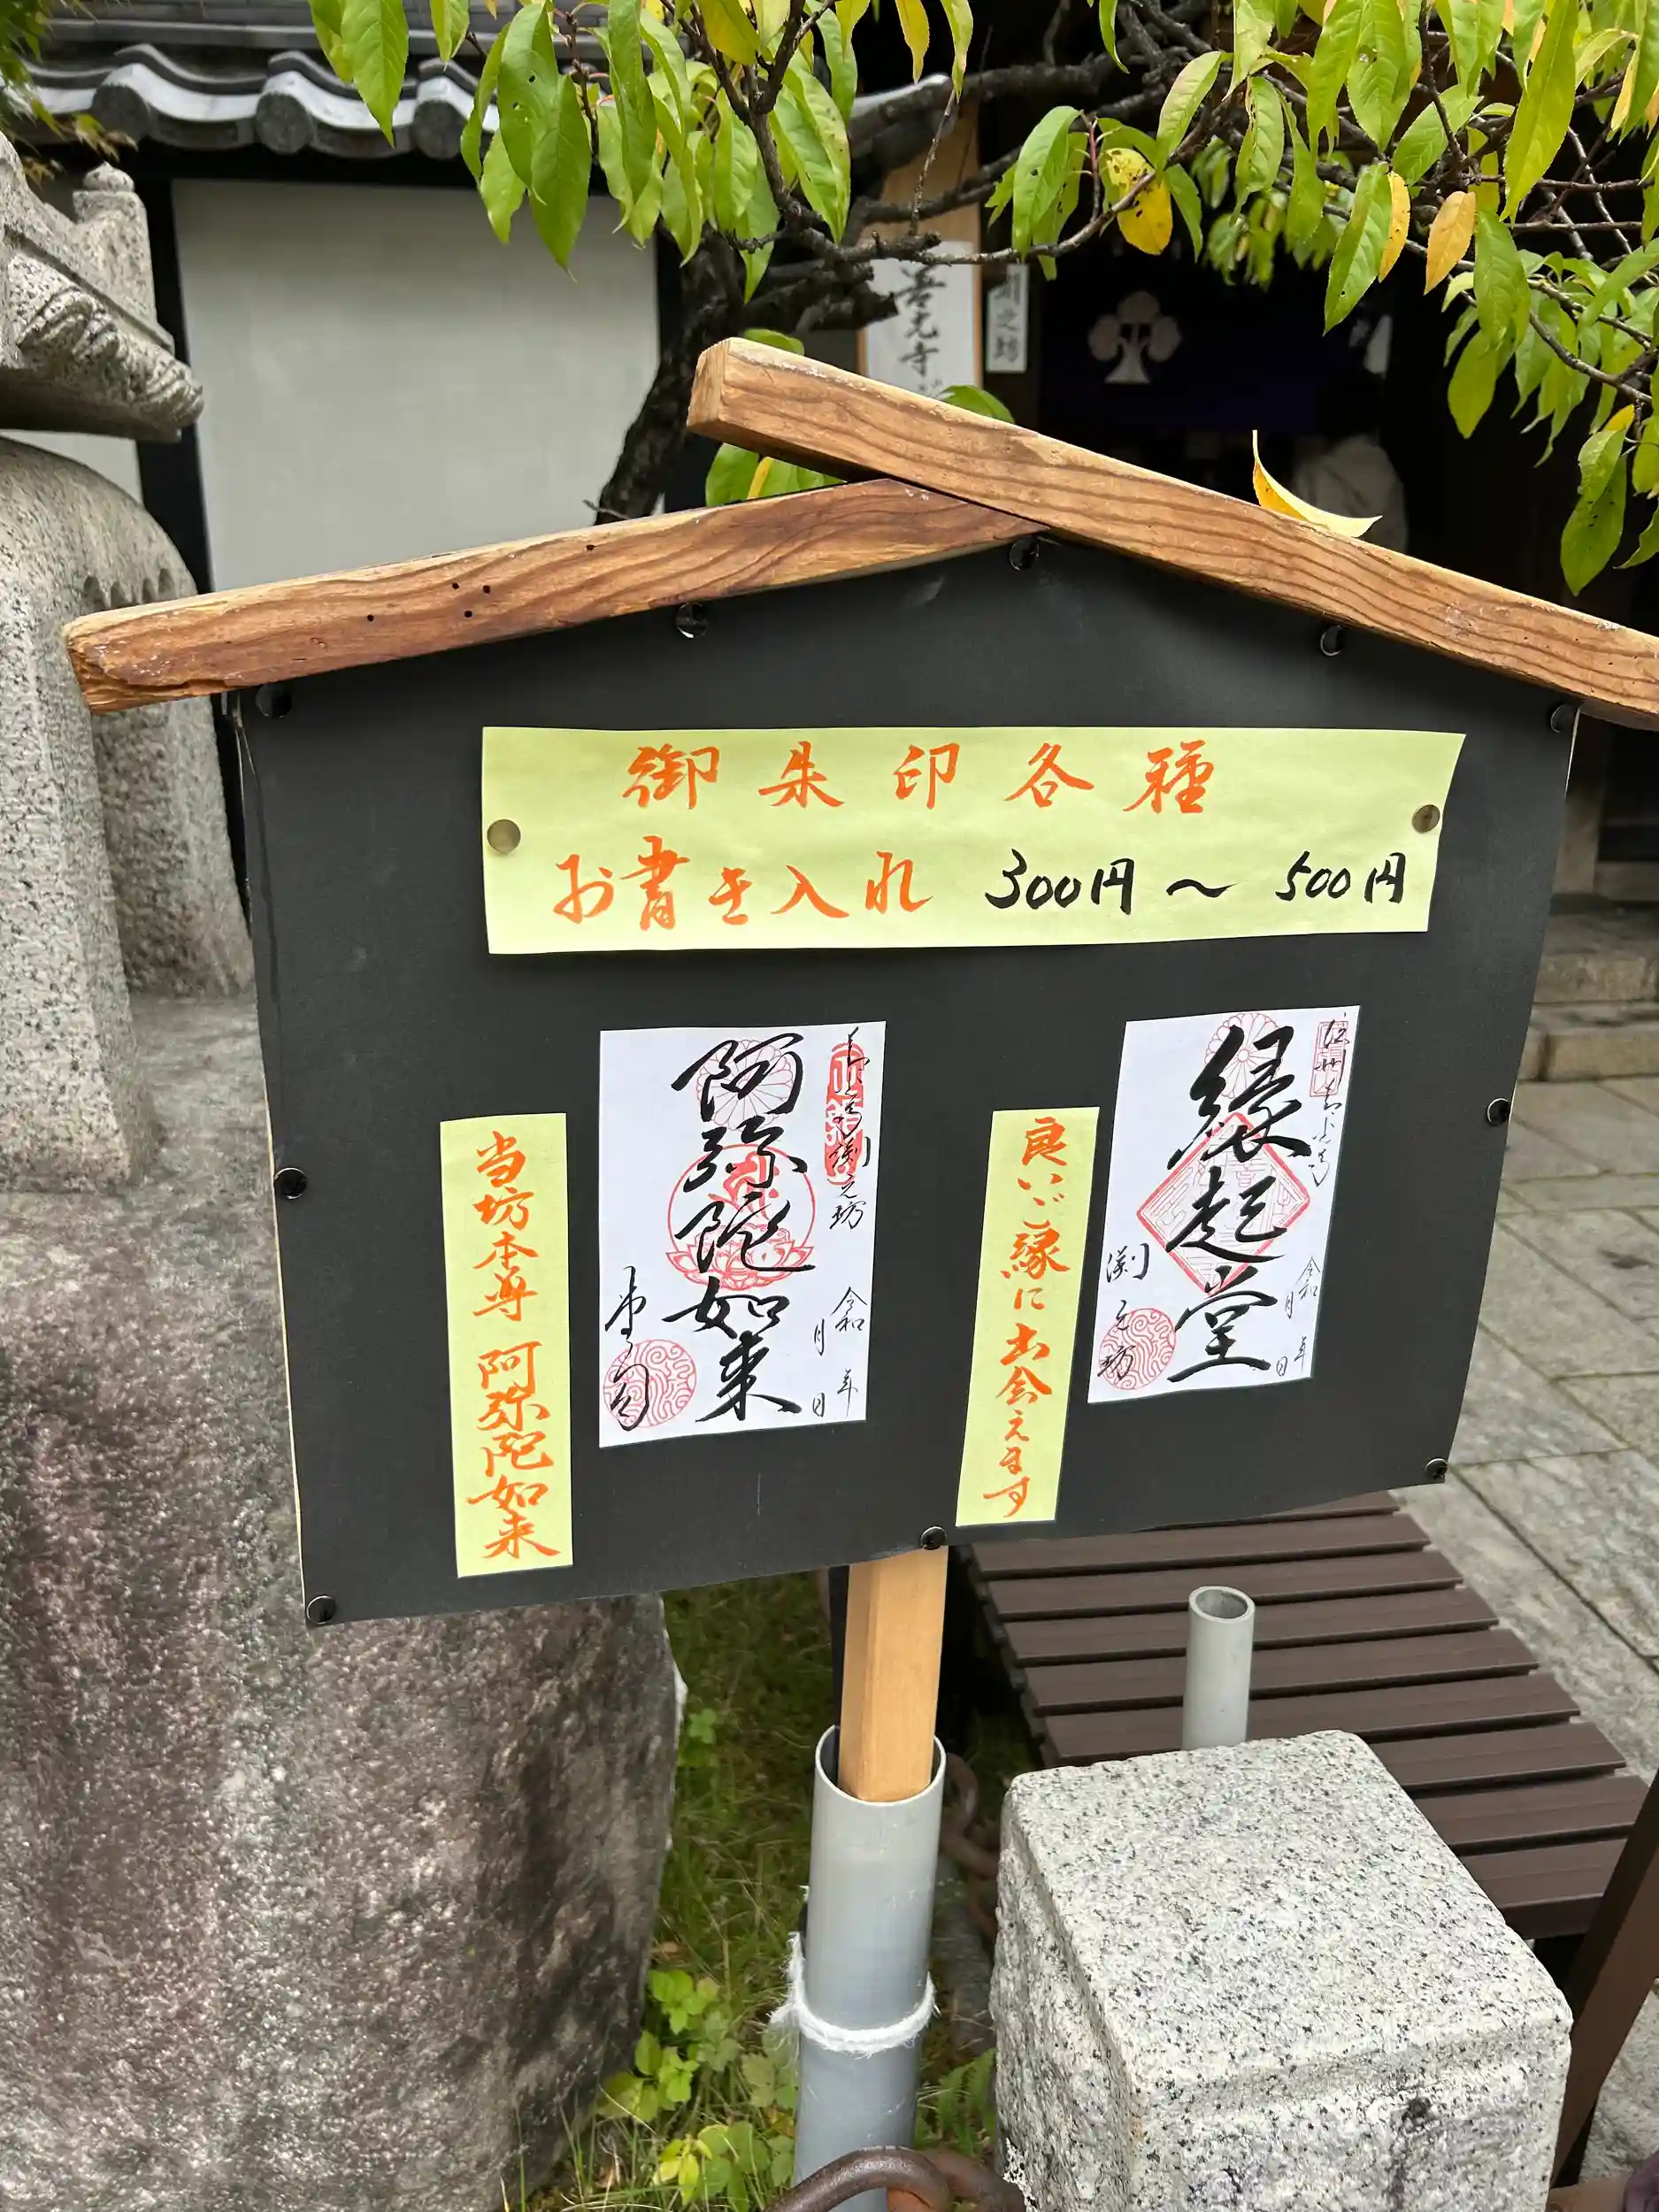 善光寺
渕之坊
御朱印各種
お書き入れ 300円～500円
縁起堂
渕之坊
令和 年
月 日
良いご縁に出会えます
渕之坊
阿弥陀如来
令和 年
月 日
当坊本尊 阿弥陀如来